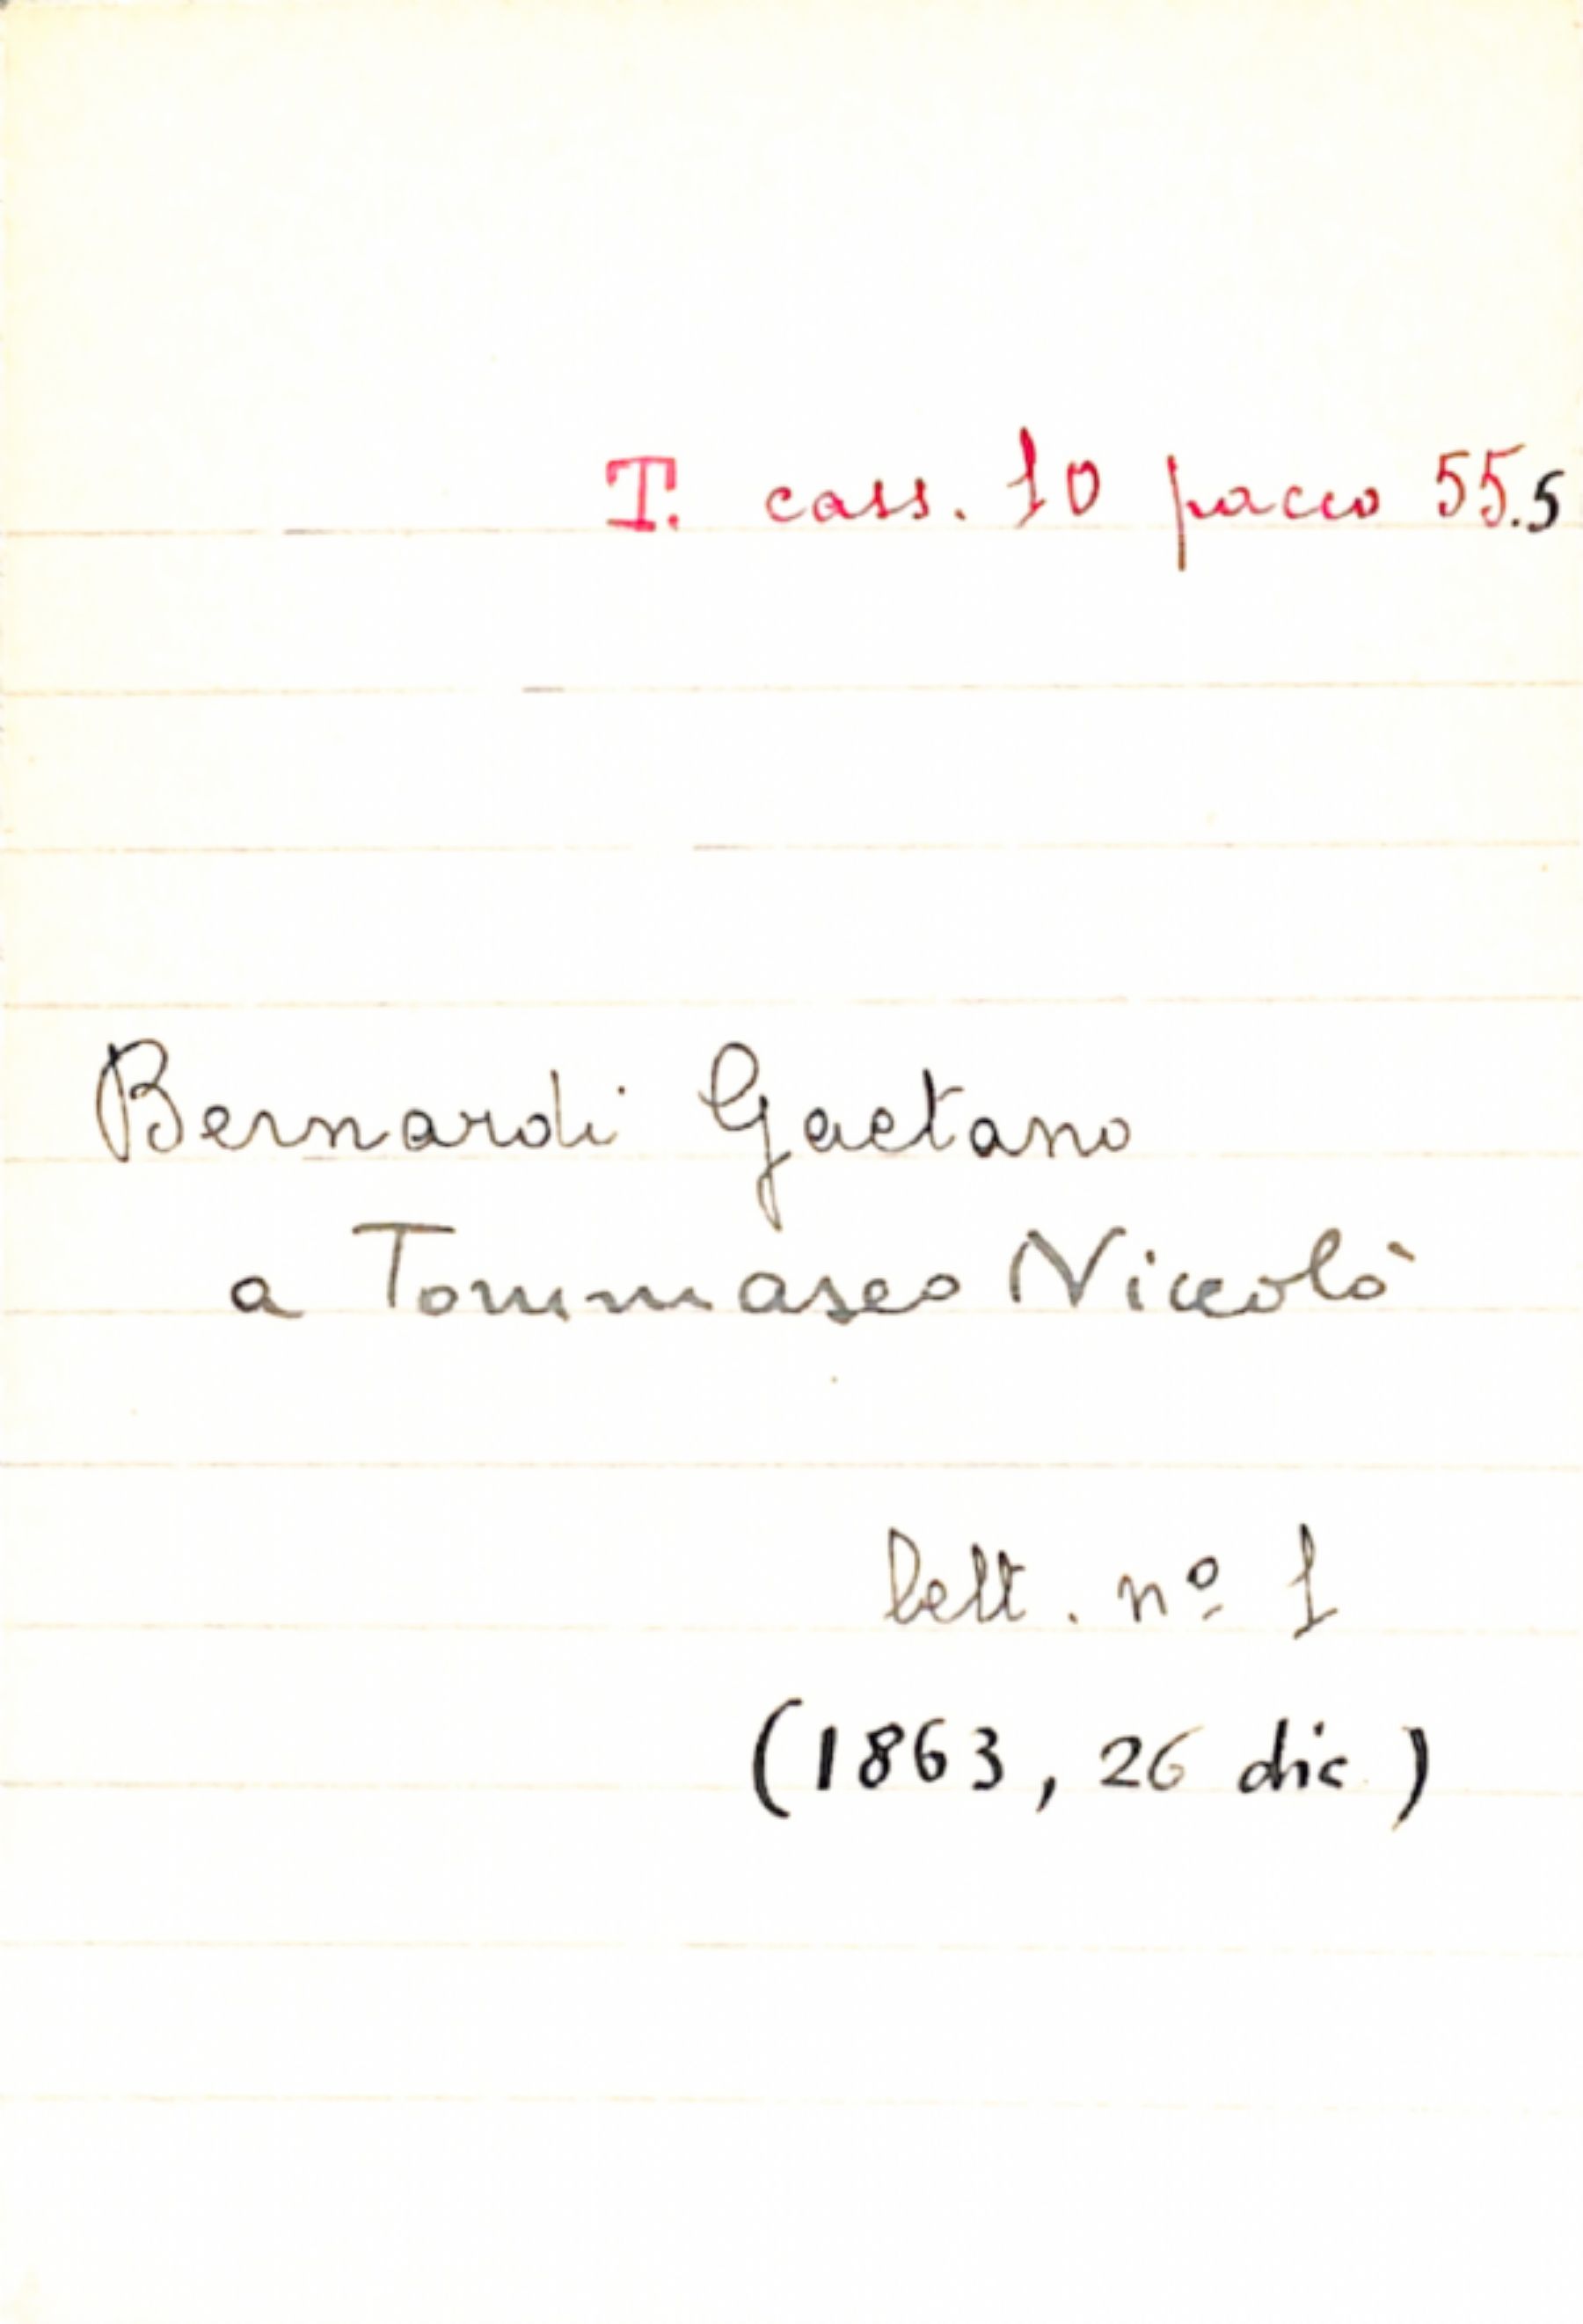 T. cass. 10 pacco 55.5
Bernardi Gaetano
a Tommaseo Niccolò
lett. nº 1
(1863, 26 dic.)